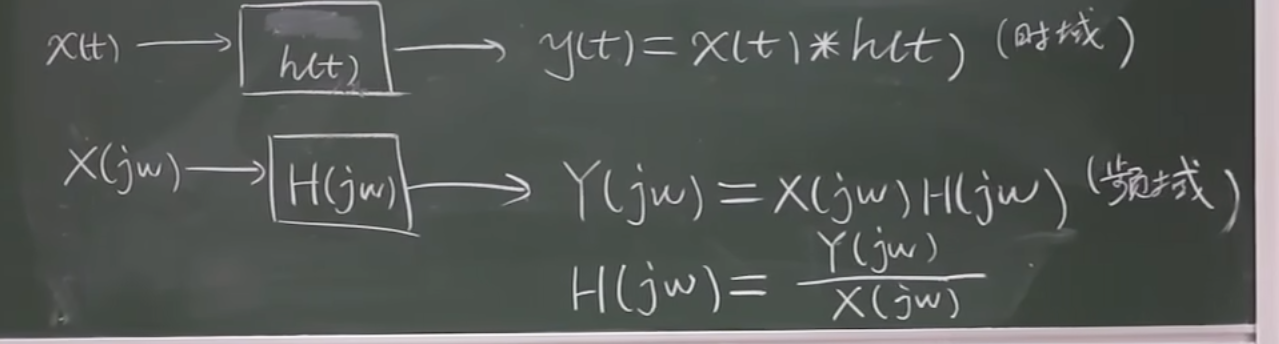 x(t) → h(t) → y(t) = x(t) * h(t) (时域)
X(jw) → H(jw) → Y(jw) = X(jw) H(jw) (频域)
H(jw) = Y(jw) / X(jw)